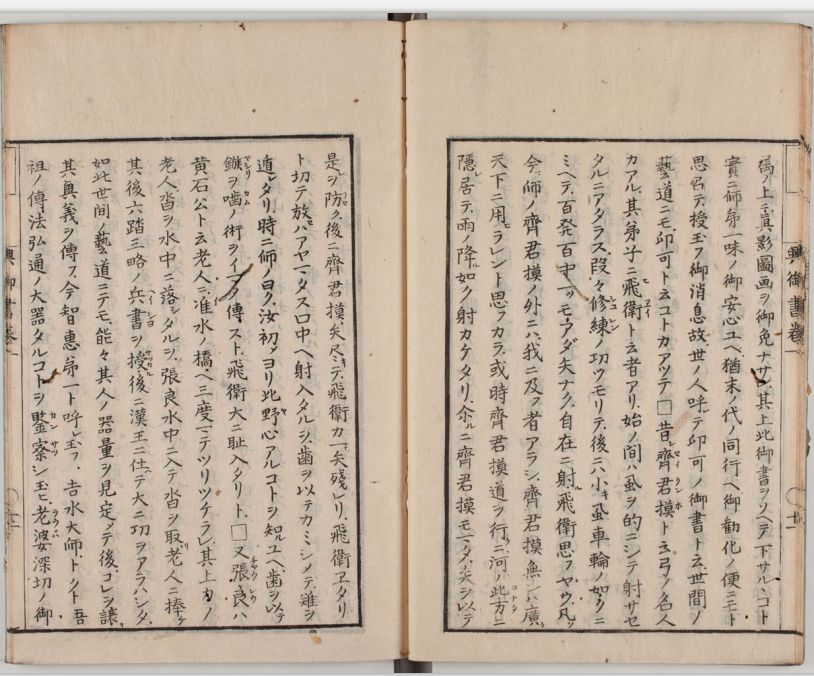 偽ノ上ニ眞影圖画ヲ御免ナサレ其上此御書ヲソヘテ下サルヽコト
實ニ師弟一味ノ御安心ユヘ猶末ノ代ノ同行ヘ御勸化ノ便ニモト
思召テ授玉フ御消息故世ノ人呼テ印可ノ御書ト云世間ノ
藝道ニモ印可ト云コトカアツテ□昔齊君摸ト云弓ノ名人
カアル其弟子ニ飛衛ト云者アリ始ノ間ハ虱ヲ的ニシテ射サセ
タルニアタラス段々修練ノ功ツモリテ後ニハ小キ虱車輪ノ如クニ
ミヘテ百発百中一ツモアダ矢ナク自在ニ射ル飛衛思フヤウ凡ソ
今師ノ齊君摸ノ外ニハ我ニ及フ者アラシ齊君摸無ンハ廣ク
天下ニ用ラレント思フカラ或時齊君摸道ヲ行クニ河ノ此方ニ
隠居テ雨ノ降ル如ク射カケタリ尓ルニ齊君摸モマタ矢ヲ以テ
是ヲ防ク後ニ齊君摸矢尽キテ飛衛カ一矢残レリ飛衛ヱタリ
ト切テ放ハアヤマタス口中ヘ射入タルヲ歯ヲ以テカミシメテ難ヲ
遁レタリ時ニ師ノ曰ク汝初メヨリ此野心アルコトヲ知ルユヘ歯ヲ以テ
鏃ヲ噛ノ術ヲイマタ傳ストテ飛衛大ニ耻入タリト□又張良ハ
黄石公ト云老人ニ淮水ノ橋ヘ三度マテツリツケラレ其上カノ
老人沓ヲ水中ニ落シタルヲ張良水中ニ入テ沓ヲ取老人ニ捧ケ
其後六踏三略ノ兵書ヲ授リ後ニ漢王ニ仕テ大ニ功ヲアラハシタ
如此世間ノ藝道ニテモ能々其人ノ器量ヲ見定メテ後コレヲ讓リ
其奥義ヲ傳フ今智惠第一ト呼レ玉フ吉水大師トクト吾
祖ノ傳法弘通ノ大器タルコトヲ鑒察シ玉ヒ老婆深切ノ御
興御書巻一
興御書巻一